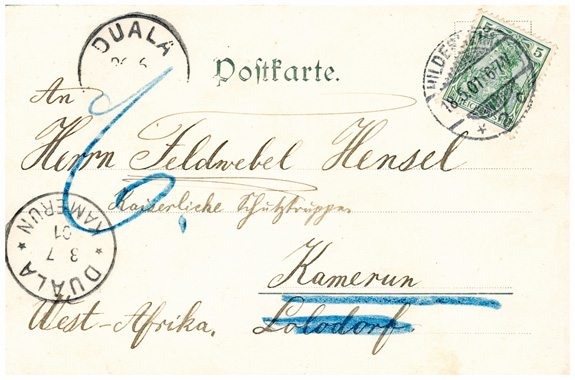 DUALA
Postkarte.
5 5
HILDES
18.5.01.6-7N
An
Herrn Feldwebel Hensel
Kaiserliche Schutztruppe
KAMERUN
3 7
01
DUALA
Kamerun
West-Afrika. Lolodorf